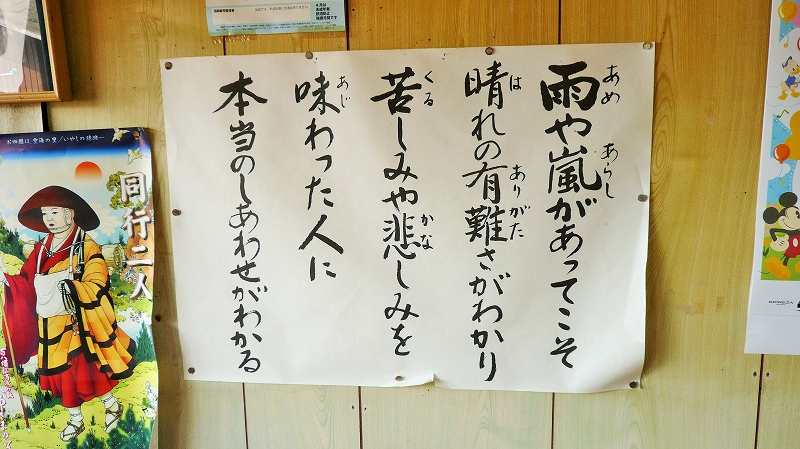 雨や嵐があってこそ
晴れの有難さがわかり
苦しみや悲しみを
味わった人に
本当のしあわせがわかる
あめ
あらし
は
ありがた
くる
かな
あじ
同行二人